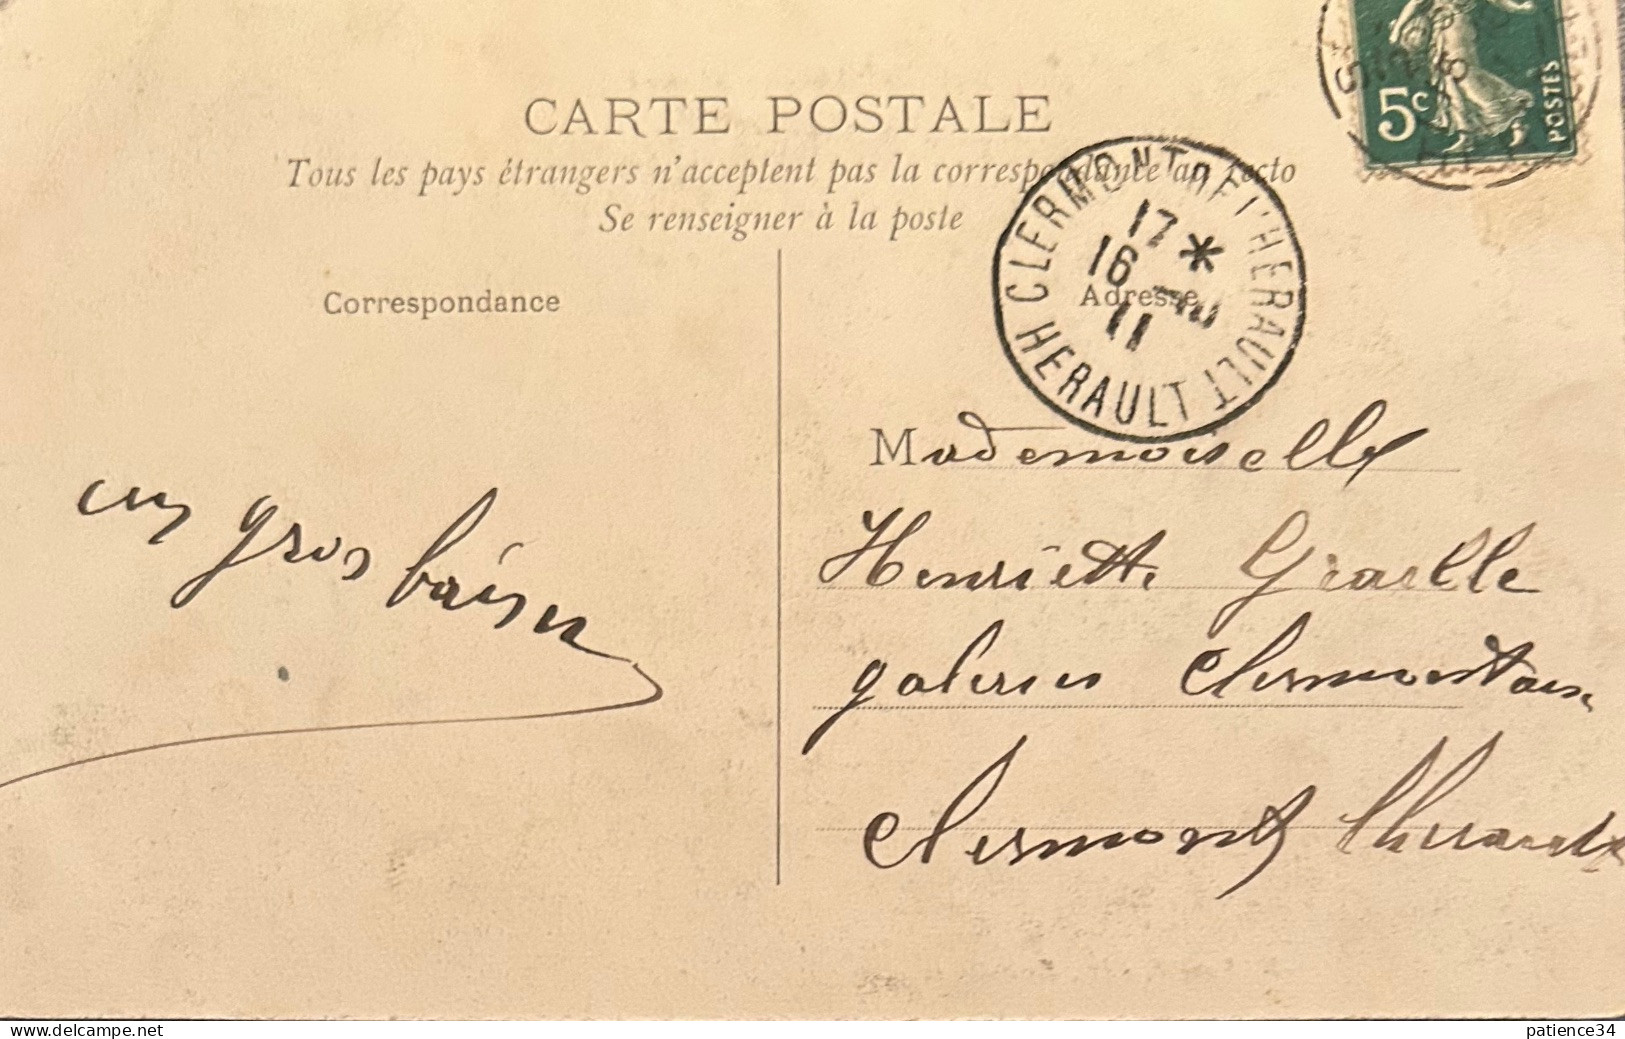 CARTE POSTALE
Tous les pays étrangers n'acceptent pas la correspondance au recto
Se renseigner à la poste
5c
POSTES
CLERMONT DE L'HERAULT
17 *
16
11
HERAULT
Correspondance
Adresse
un gros baiser
Mademoiselle
Henriette
galeries Clermontaise
Clermont l'herault
delcampe.net
patience34